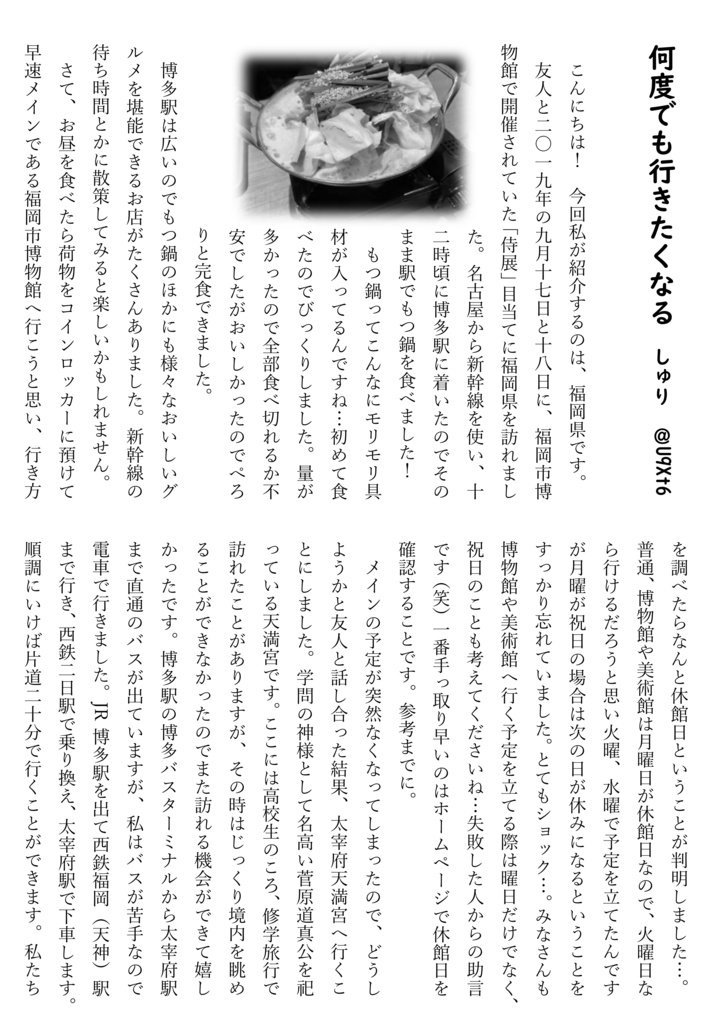 何度でも行きたくなる　しゅり　@U9Xt6
こんにちは！　今回私が紹介するのは、福岡県です。
友人と二〇一九年の九月十七日と十八日に、福岡市博
物館で開催されていた「侍展」目当てに福岡県を訪れまし
た。名古屋から新幹線を使い、十
二時頃に博多駅に着いたのでその
まま駅でもつ鍋を食べました！
もつ鍋ってこんなにモリモリ具
材が入ってるんですね…初めて食
べたのでびっくりしました。量が
多かったので全部食べ切れるか不
安でしたがおいしかったのでぺろ
りと完食できました。
博多駅は広いのでもつ鍋のほかにも様々なおいしいグ
ルメを堪能できるお店がたくさんありました。新幹線の
待ち時間とかに散策してみると楽しいかもしれません。
さて、お昼を食べたら荷物をコインロッカーに預けて
早速メインである福岡市博物館へ行こうと思い、行き方
を調べたらなんと休館日ということが判明しました…。
普通、博物館や美術館は月曜日が休館日なので、火曜日な
ら行けるだろうと思い火曜、水曜で予定を立てたんです
が月曜が祝日の場合は次の日が休みになるということを
すっかり忘れていました。とてもショック…。みなさんも
博物館や美術館へ行く予定を立てる際は曜日だけでなく、
祝日のことも考えてくださいね…失敗した人からの助言
です（笑）一番手っ取り早いのはホームページで休館日を
確認することです。参考までに。
メインの予定が突然なくなってしまったので、どうし
ようかと友人と話し合った結果、太宰府天満宮へ行くこ
とにしました。学問の神様として名高い菅原道真公を祀
っている天満宮です。ここには高校生のころ、修学旅行で
訪れたことがありますが、その時はじっくり境内を眺め
ることができなかったのでまた訪れる機会ができて嬉し
かったです。博多駅の博多バスターミナルから太宰府駅
まで直通のバスが出ていますが、私はバスが苦手なので
電車で行きました。JR 博多駅を出て西鉄福岡（天神）駅
まで行き、西鉄二日駅で乗り換え、太宰府駅で下車します。
順調にいけば片道二十分で行くことができます。私たち